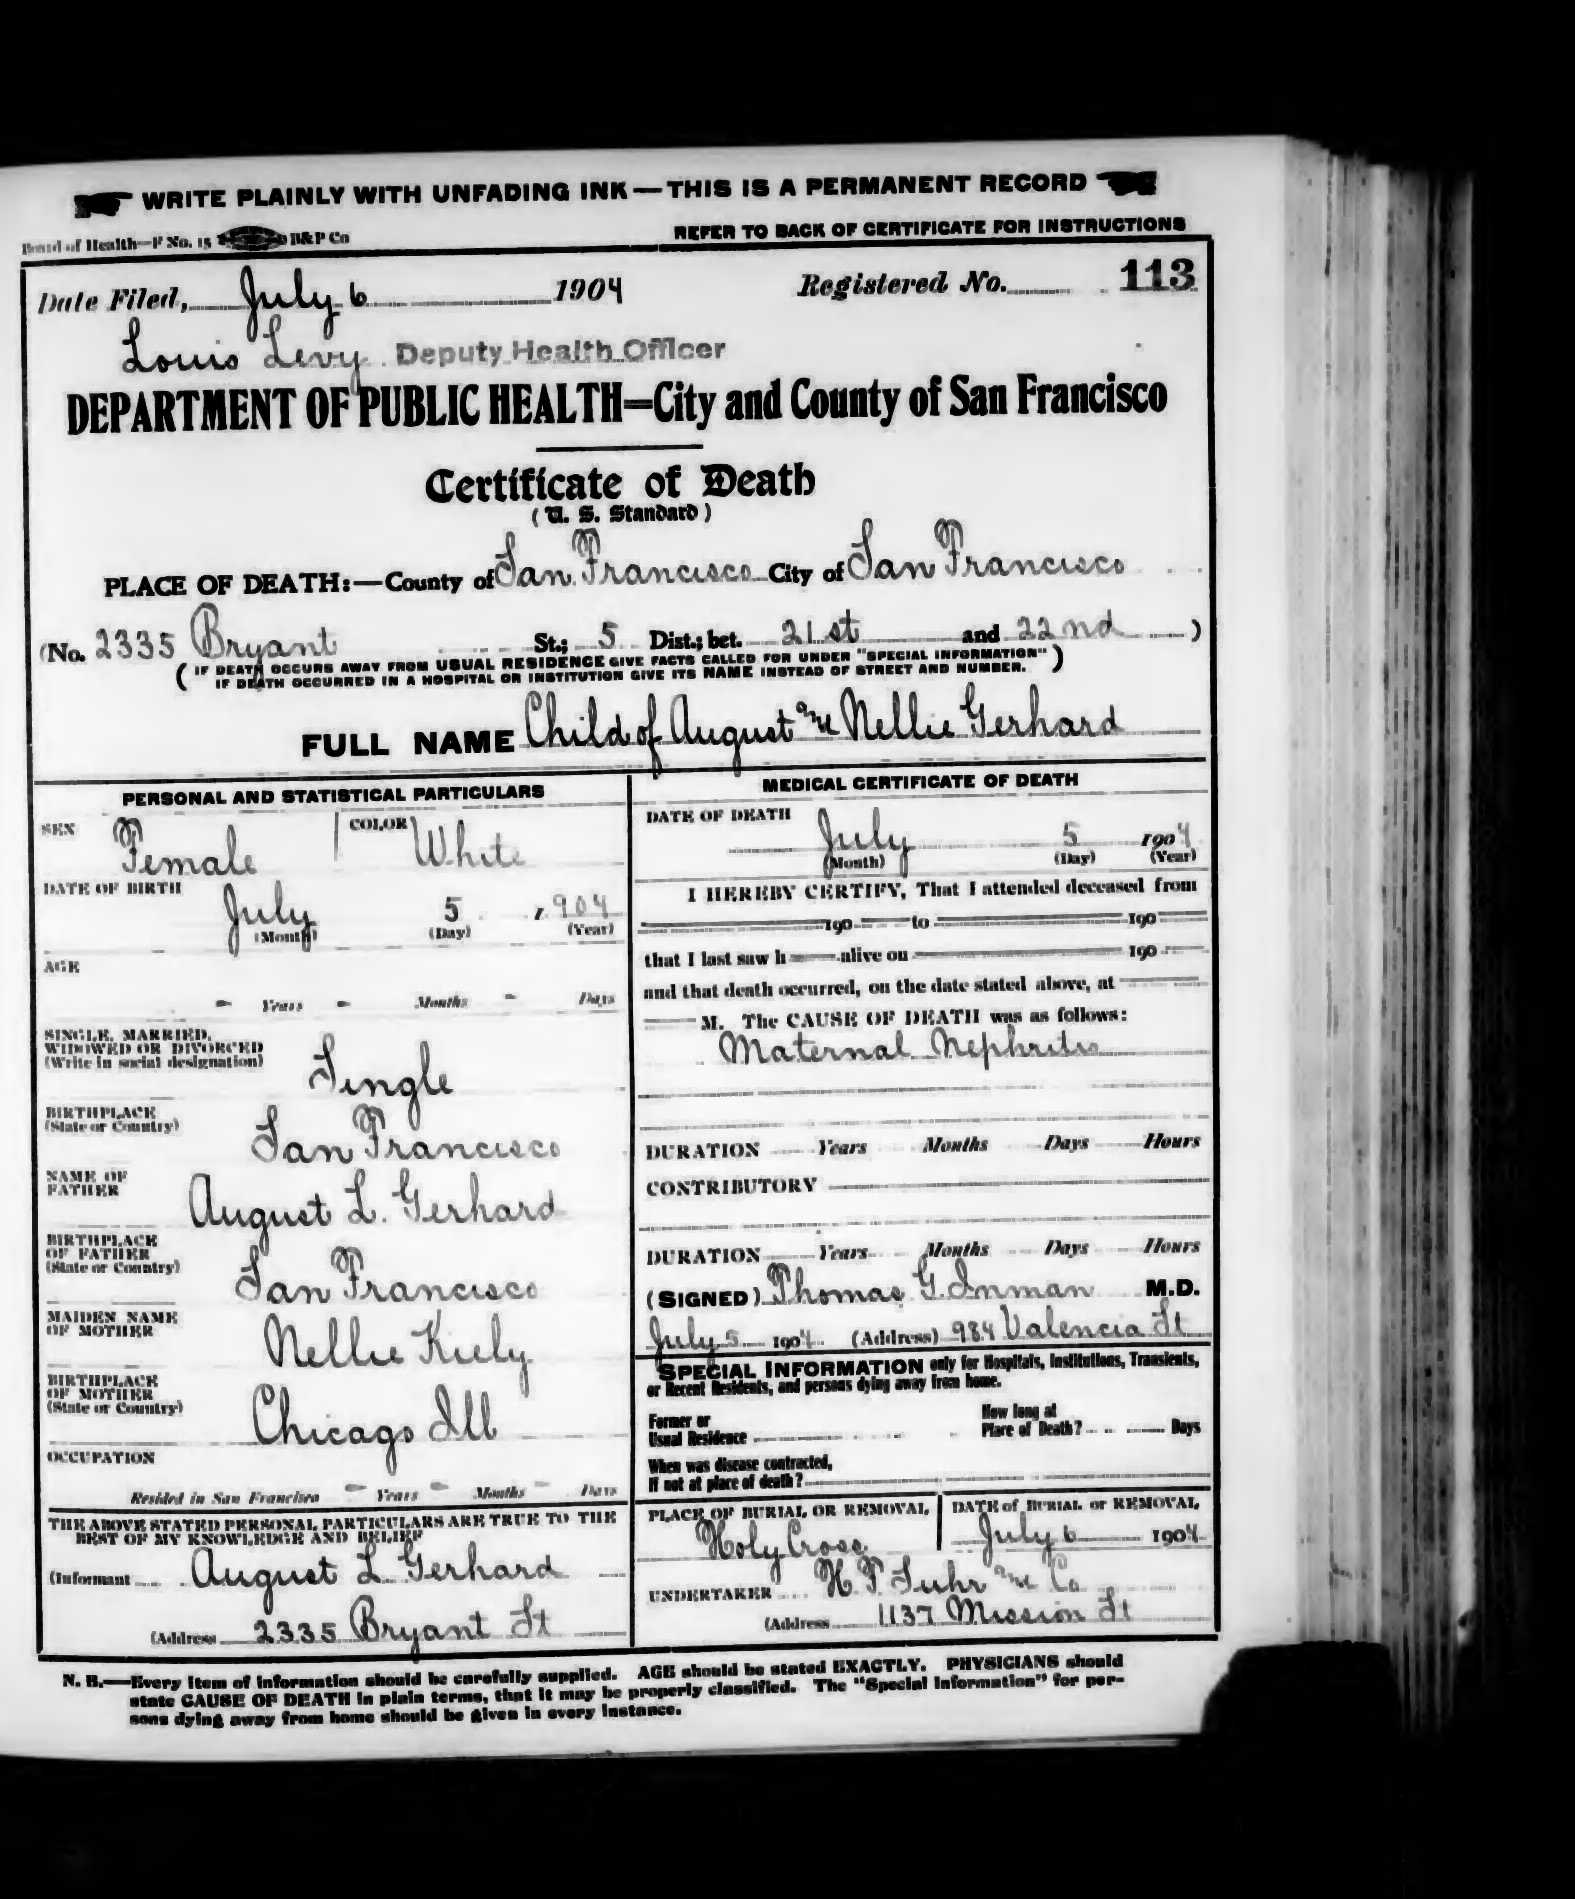 WRITE PLAINLY WITH UNFADING INK — THIS IS A PERMANENT RECORD
Board of Health—F No. 15 B&P Co
REFER TO BACK OF CERTIFICATE FOR INSTRUCTIONS
Date Filed, July 6 1904 Registered No. 113
Louis Levy Deputy Health Officer
DEPARTMENT OF PUBLIC HEALTH=City and County of San Francisco
Certificate of Death
(U. S. Standard)
PLACE OF DEATH:—County of San Francisco City of San Francisco
(No. 2335 Bryant St.; 5 Dist.; bet. 21st and 22nd )
( IF DEATH OCCURS AWAY FROM USUAL RESIDENCE GIVE FACTS CALLED FOR UNDER "SPECIAL INFORMATION" )
( IF DEATH OCCURRED IN A HOSPITAL OR INSTITUTION GIVE ITS NAME INSTEAD OF STREET AND NUMBER. )
FULL NAME Child of August and Nellie Gerhard
PERSONAL AND STATISTICAL PARTICULARS
SEX Female COLOR White
DATE OF BIRTH
July 5 1904
(Month) (Day) (Year)
AGE
- Years - Months - Days
SINGLE, MARRIED,
WIDOWED OR DIVORCED
(Write in social designation)
Single
BIRTHPLACE
(State or Country)
San Francisco
NAME OF
FATHER
August L. Gerhard
BIRTHPLACE
OF FATHER
(State or Country)
San Francisco
MAIDEN NAME
OF MOTHER
Nellie Kiely
BIRTHPLACE
OF MOTHER
(State or Country)
Chicago Ill
OCCUPATION
Resided in San Francisco - Years - Months - Days
THE ABOVE STATED PERSONAL PARTICULARS ARE TRUE TO THE
BEST OF MY KNOWLEDGE AND BELIEF
(Informant August L Gerhard
(Address 2335 Bryant St
MEDICAL CERTIFICATE OF DEATH
DATE OF DEATH
July 5 1904
(Month) (Day) (Year)
I HEREBY CERTIFY, That I attended deceased from
190 to 190
that I last saw h alive on 190
and that death occurred, on the date stated above, at
M. The CAUSE OF DEATH was as follows:
Maternal Nephritis
DURATION Years Months Days Hours
CONTRIBUTORY
DURATION Years Months Days Hours
(SIGNED) Thomas G. Inman M.D.
July 5 1904 (Address) 984 Valencia St
SPECIAL INFORMATION only for Hospitals, Institutions, Transients,
or Recent Residents, and persons dying away from home.
Former or
Usual Residence
How long at
Place of Death? Days
When was disease contracted,
If not at place of death?
PLACE OF BURIAL OR REMOVAL
Holy Cross
DATE of BURIAL or REMOVAL
July 6 1904
UNDERTAKER H. F. Suhr and Co
(Address 1137 Mission St
N. B.—Every item of information should be carefully supplied. AGE should be stated EXACTLY. PHYSICIANS should
state CAUSE OF DEATH in plain terms, that it may be properly classified. The "Special Information" for per-
sons dying away from home should be given in every instance.